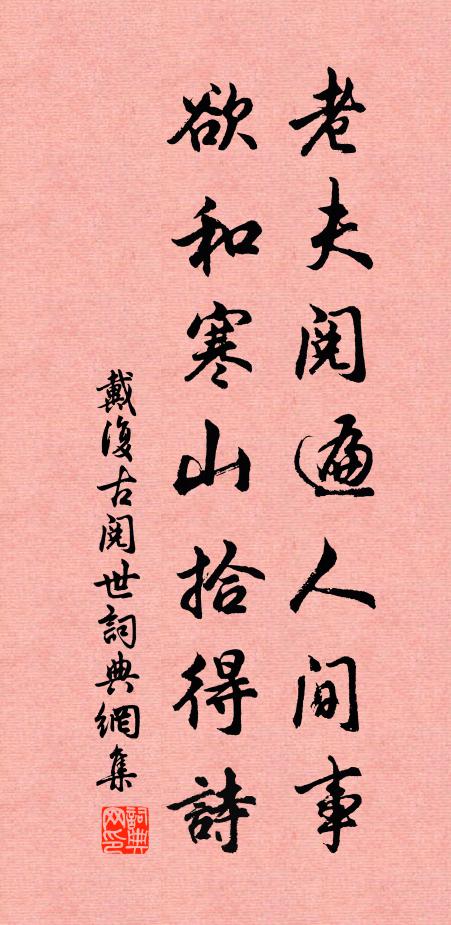 老夫閱遍人間事
欲和寒山拾得詩
戴復古閱世詞典網集
詞典网印